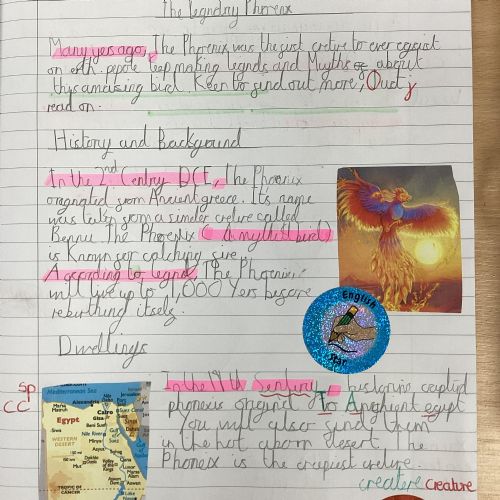 The Legnday Phoenix
Many yers ago, The Phoenix was the first cretve to ever egsist
on erth. pepole keep making legnds and Myths of about
this amaising bird. Keen to find out more, Just
read on.
History and Background
In the 2nd Centry DCE, The Phoenix
originated from Ancient greace. It's name
was taken from a simeler cretive called
Bennu. The Phoenix (A mythitl bird)
is Known for catching fire.
According to legnd, The Phoenix
will live up to 1,000 Yers before
rebirthing itself.
English
Star
Dwellings
sp
CC
In the 19th Sentury, historins
phonexis orignd To Anghient egypt
You will also find them
in the hot desert. The
Phoenix is the
creature creature
Mediterranean Sea
Alexandria
Marsa Matruh
Cairo
Giza
Suez
Siwa
Egypt
Sinai
WESTERN DESERT
Minya
Asyut
Luxor
Aswan
TROPIC OF CANCER